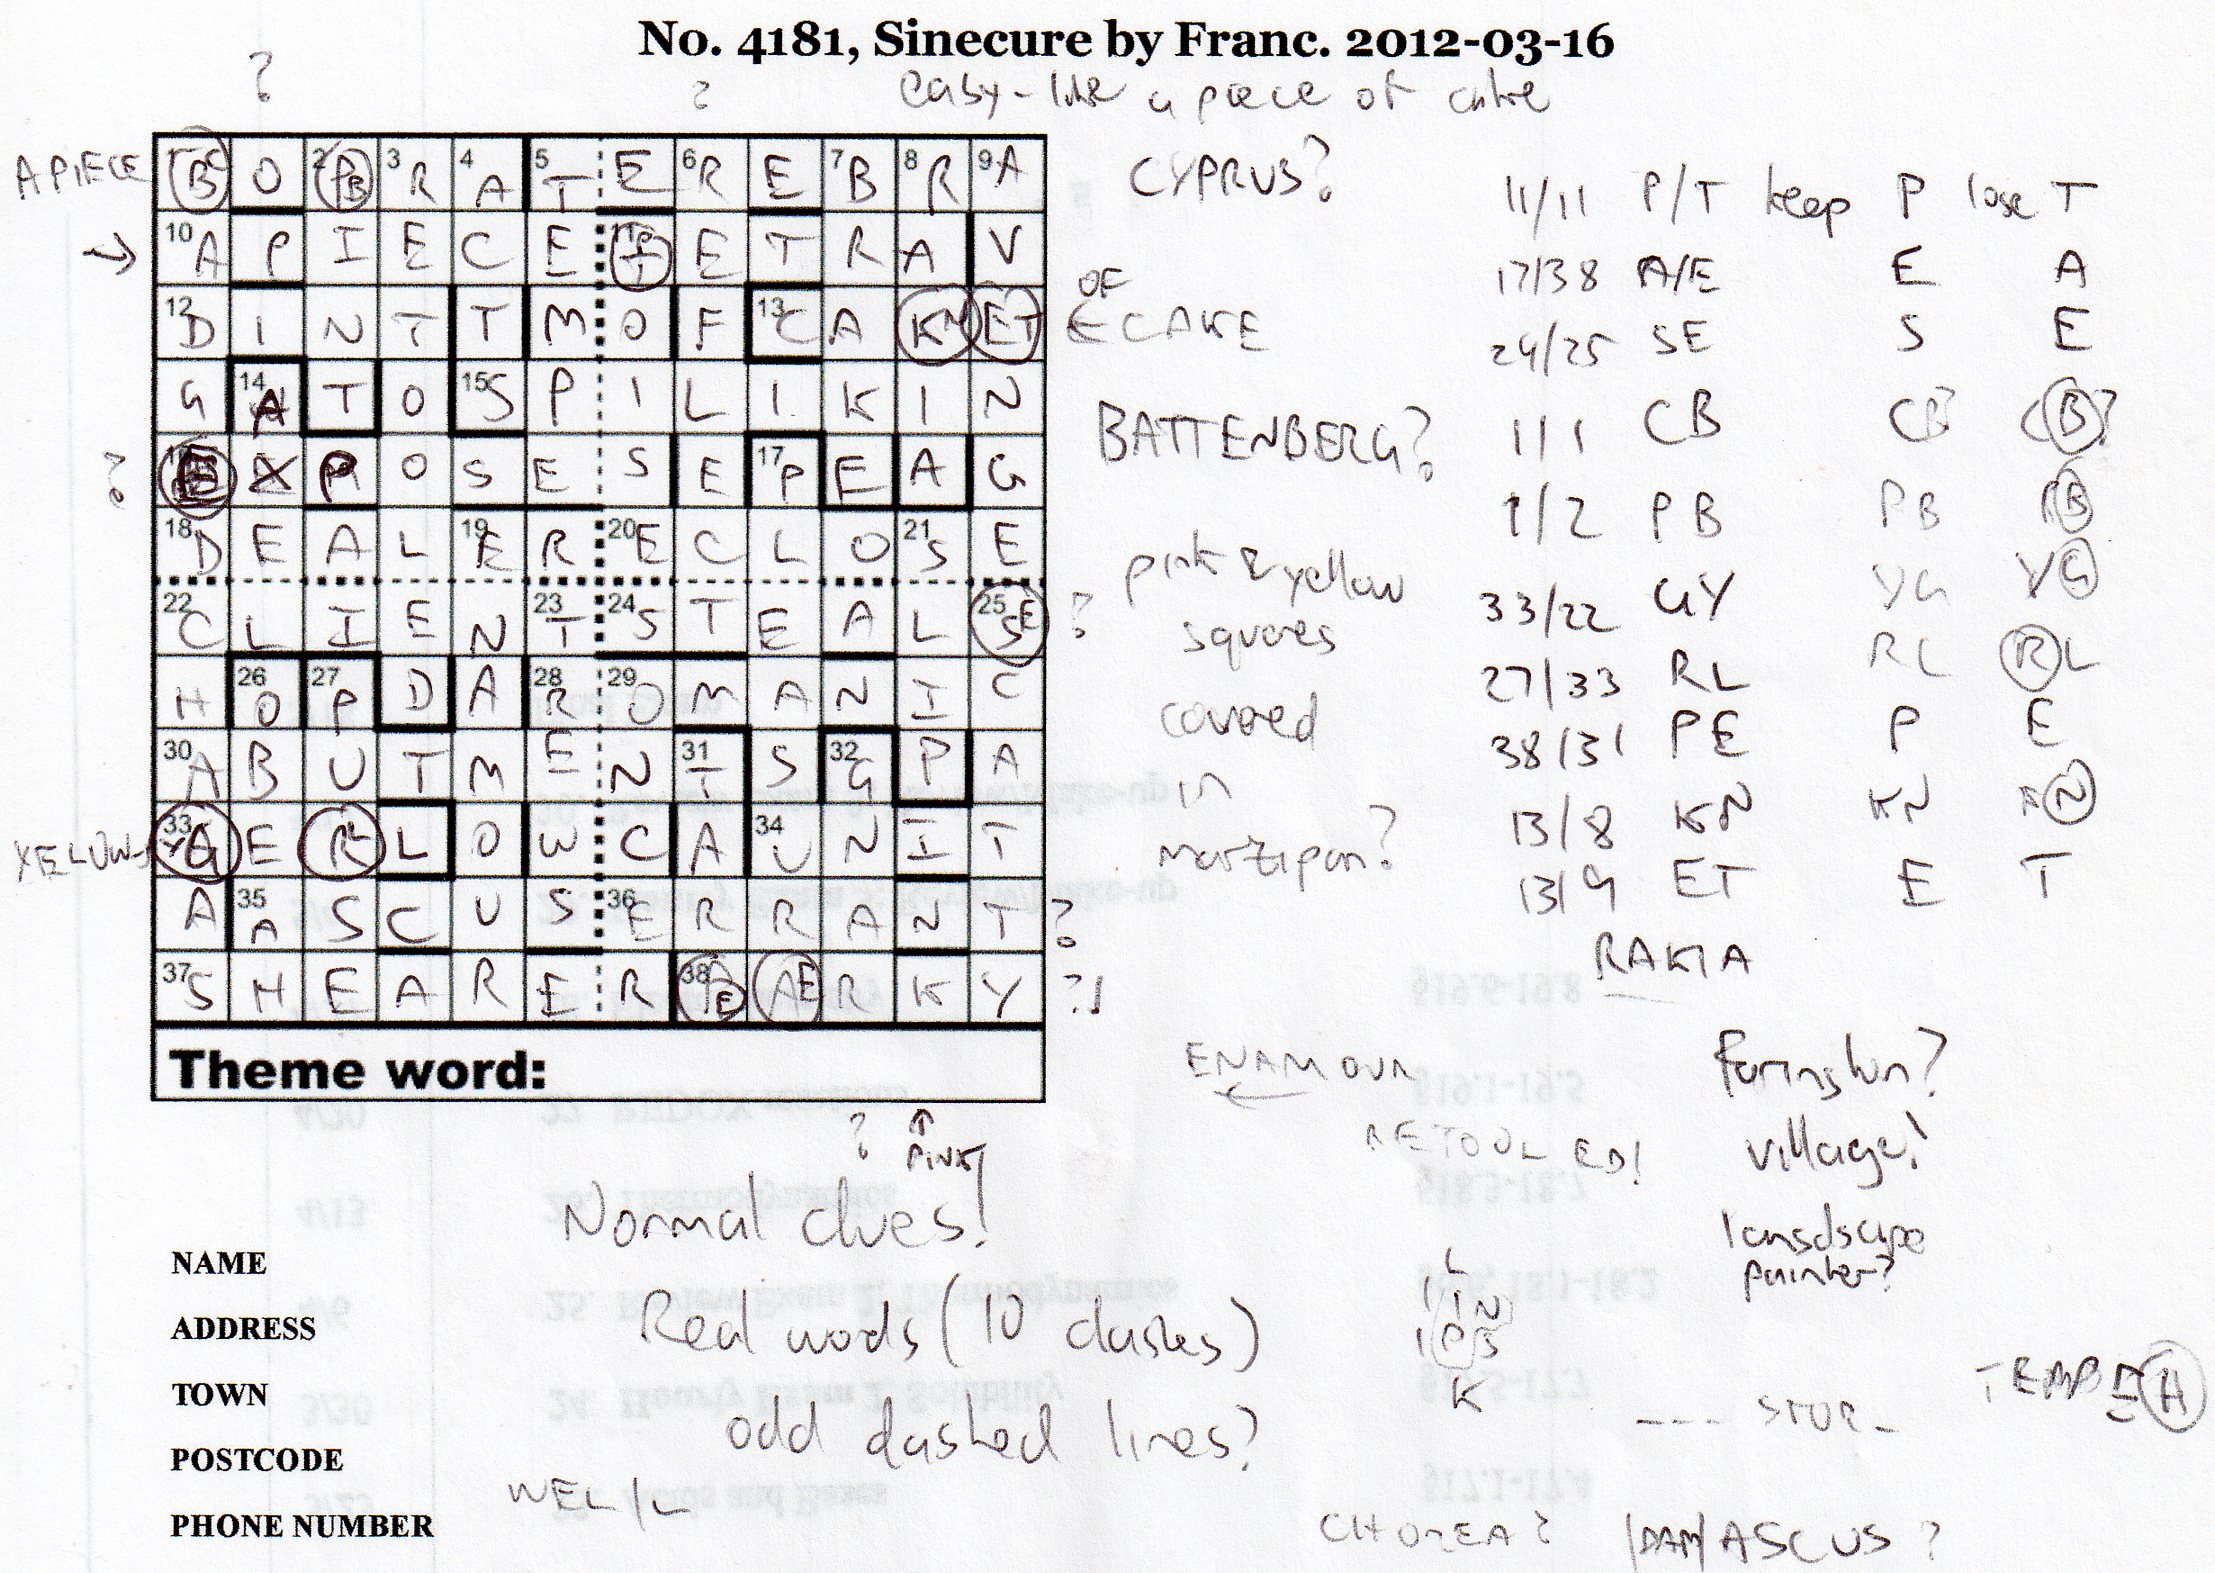 No. 4181, Sinecure by Franc. 2012-03-16
? ? easy - like a piece of cake
A PIECE
1 B C O 2 P B 3 R 4 A 5 T E 6 R E 7 B 8 R 9 A
→ 10 A P I E C E 11 P I E T R A V
12 D I N T T M O F 13 C A K N E T
OF
← CAKE
G 14 A T O 15 S P I L I K I N
? E X P O S E S E 17 P E A G
18 D E A L 19 E R 20 E C L O 21 S E
22 C L I E N 23 T 24 S T E A L 25 S E ?
H 26 O 27 P D A 28 R 29 O M A N I C
30 A B U T M E N 31 T S 32 G P A
YELLOW
33 Y G E R L L O W C A 34 U N I T
A 35 A S C U S 36 E R R A N T ?
37 S H E A R E R 38 A E A E R K Y ?!
Theme word:
? ↑
PINK!
CYPRUS?
BATTENBERG?
pink & yellow
squares
covered
in
marzipan?
11/11 P/T keep P lose T
17/38 A/E E A
24/25 SE S E
1/1 CB CB? CB?
1/2 PB PB PB
33/22 GY YG YG
27/33 RL RL RL
38/31 PE P E
13/8 KN KN KN
13/9 ET E T
RAKIA
ENAMOUR
←
RETOOLED!
Farington?
village!
landscape
painter?
Normal clues!
Real words (10 dashes)
odd dashed lines?
NAME
ADDRESS
TOWN
POSTCODE
PHONE NUMBER
WEL/L
L
I I N
I P S
K
--- STUR-
TEMPEH
CHOREA?
/DAM/ASCUS?